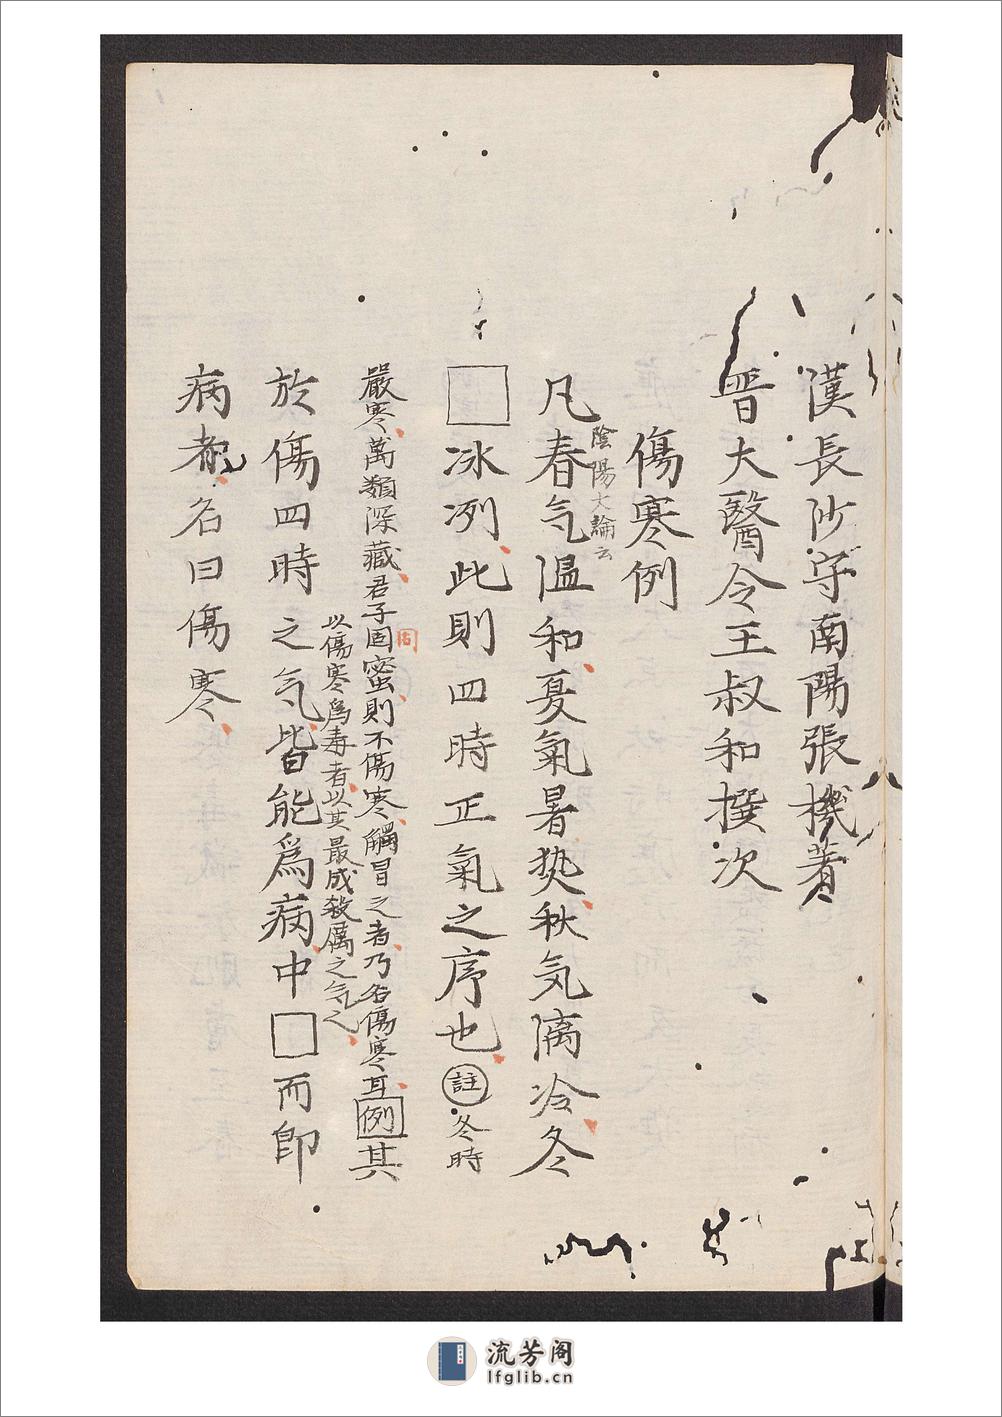 漢長沙守南陽張機著
晋大醫令王叔和撰次
傷寒例
陰陽大論云
凡春气温和夏氣暑𤍠秋気漓冷冬
□冰冽此則四時正氣之序也註冬時
嚴寒萬類深藏君子固蜜則不傷寒觸冒之者乃名傷寒耳例其
以傷寒爲毒者以其最成殺厲之气也
於傷四時之气皆能爲病中□而即
病者名曰傷寒
流芳阁
lfglib.cn